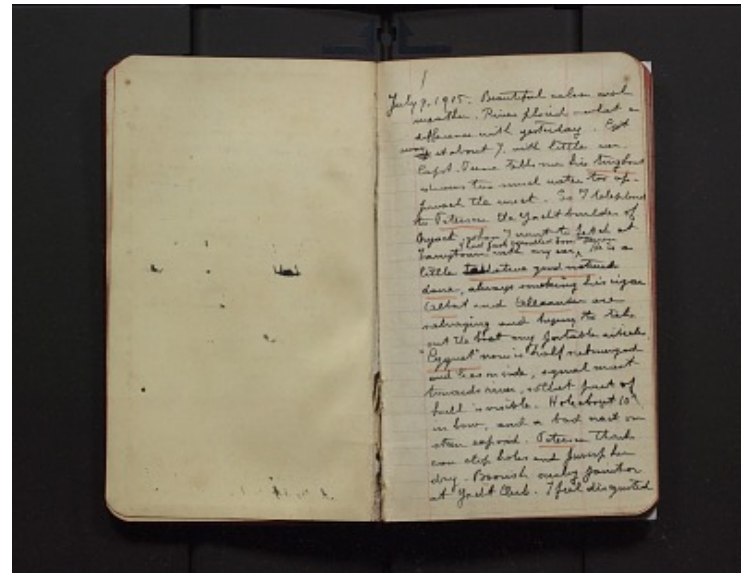 1
July 9, 1915. Beautiful calm cool
weather. River placid - what a
difference with yesterday. Got
up at about 7, with little
Capt. tells me his tugboat
draws too much water to ap-
proach the wreck. So I telephoned
to Petersen the Yacht builder of
Nyack, whom I went to fetch at
Tarrytown with my car, He is a
little talkative good natured
dane, always smoking his cigar
Albert and are
salvaging and trying to take
out the boat any portable articles.
"Cygnet" now is half submerged
and lies on side, signal mast
towards river, so that part of
hull is visible. Hole about 10"
in bow, and a bad on
stern . Petersen thinks
can stop holes and pump her
dry. Boorish janitor
at Yacht Club. I feel disgusted